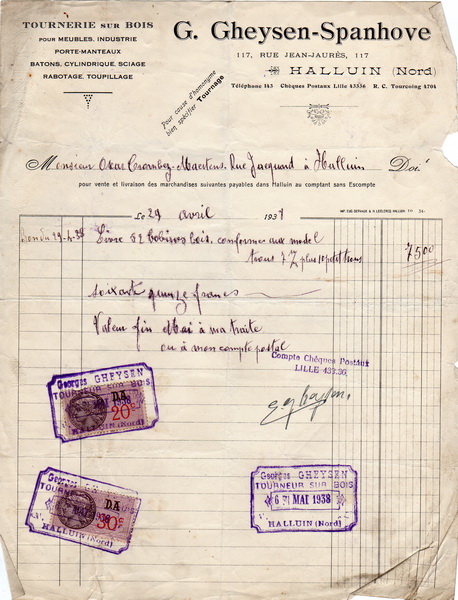 TOURNERIE SUR BOIS
POUR MEUBLES, INDUSTRIE
PORTE-MANTEAUX
BATONS, CYLINDRIQUE, SCIAGE
RABOTAGE, TOUPILLAGE
Pour cause d'homonyme
bien spécifier Tournage
G. Gheysen-Spanhove
117, RUE JEAN-JAURÈS, 117
HALLUIN (Nord)
Téléphone 143 Chèques Postaux Lille 43336 R. C. Tourcoing 4704
Monsieur Oscar Crombez-Maertens, Rue Jacquard à Halluin Doit
pour vente et livraison des marchandises suivantes payables dans Halluin au comptant sans Escompte
Le 29 avril 1938
29-4-38 Livré 52 bobines bois, conformes aux model
trous 7 Z plus 10 petit trous 75 00
soixante quinze francs
Valeur fin Mai à ma traite
ou à mon compte postal
Compte Chèques Postaux
LILLE 433.36
Georges GHEYSEN
TOURNEUR SUR BOIS
DA
1938
20c
HALLUIN (Nord)
Georges GHEYSEN
DA
30c
HALLUIN (Nord)
Georges GHEYSEN
TOURNEUR SUR BOIS
MAI 1938
HALLUIN (Nord)